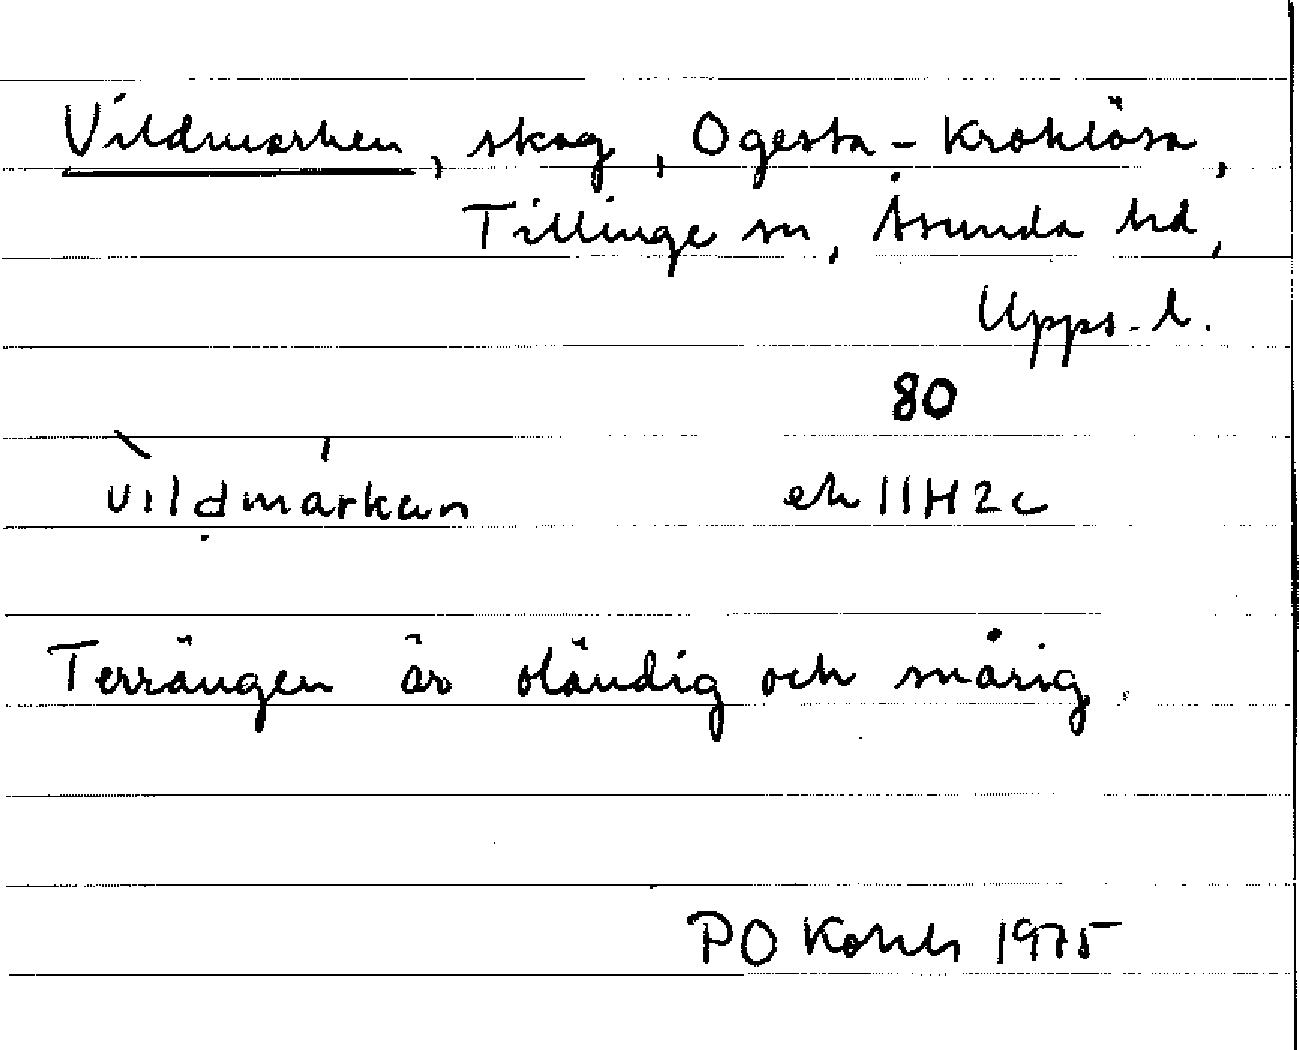 Vildmarken, skog, Ogesta-Kroklösa,
Tillinge sn, Åsunda hd,
Upps. l.
80
vìldmárkan ek 11H2c
Terrängen är oländig och snårig.
PO 1975